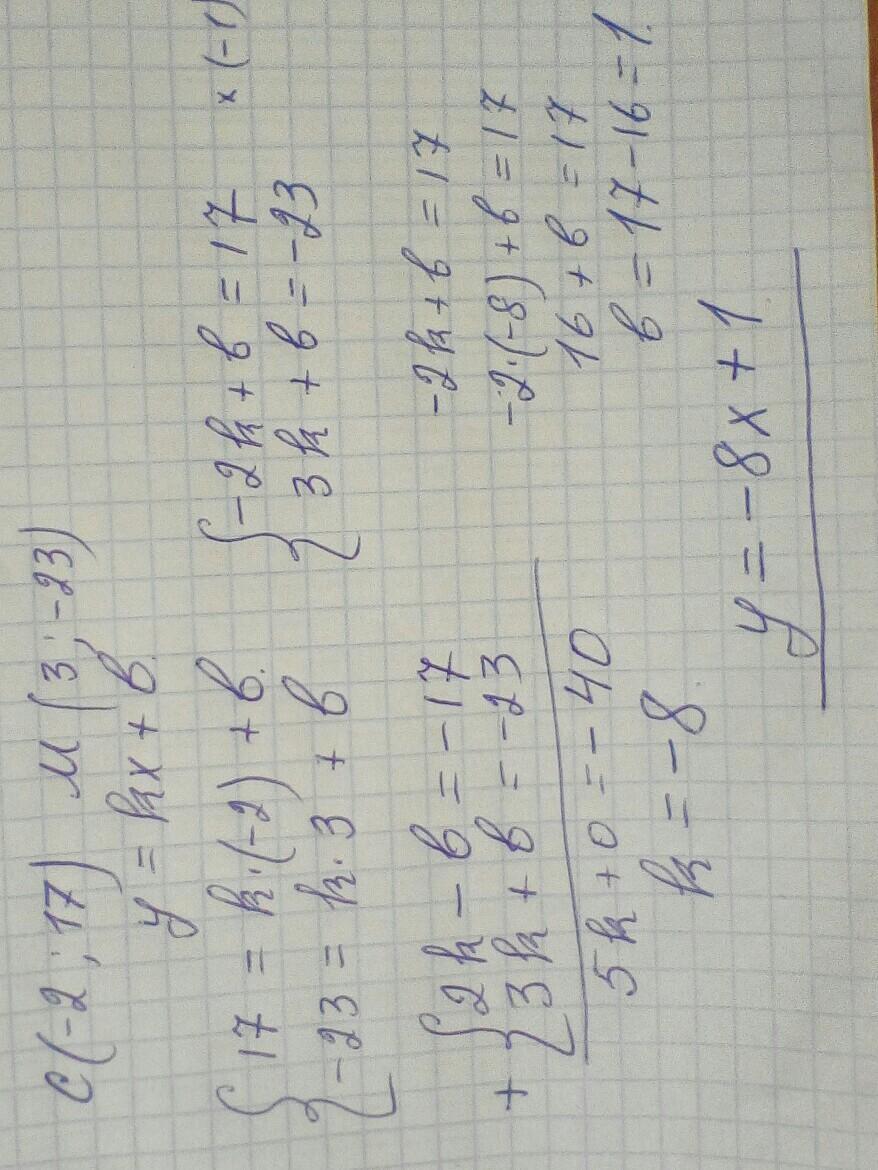 C(-2; 17) M(3; -23)
y = kx + b.
{17 = k·(-2) + b.
{-23 = k·3 + b
{-2k + b = 17 x(-1)
{3k + b = -23
+ {2k - b = -17
{3k + b = -23
5k + 0 = -40
k = -8.
-2k + b = 17
-2·(-8) + b = 17
16 + b = 17
b = 17 - 16 = 1.
y = -8x + 1